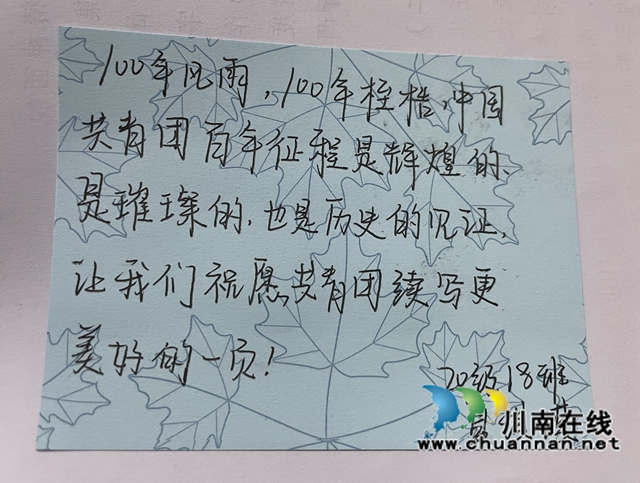 100年风雨，100年桎梏，中国
共青团百年征程是辉煌的、
是璀璨的，也是历史的见证，
让我们祝愿共青团续写更
美好的一页！
20级18班
川南在线
www.chuannan.net